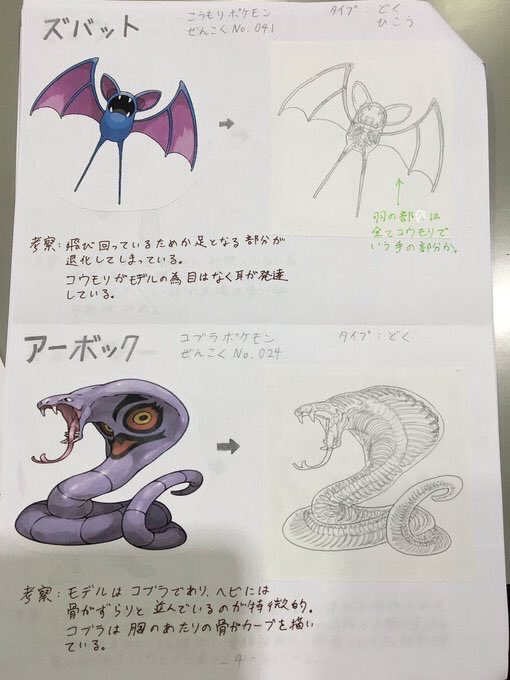 ズバット
こうもりポケモン
ぜんこく No.041
タイプ：どく
ひこう
羽の部分は
全てコウモリで
いう手の部分か。
考察：飛び回っているためか足となる部分が
退化してしまっている。
コウモリがモデルの為目はなく耳が発達
している。
アーボック
コブラポケモン
ぜんこく No.024
タイプ：どく
考察：モデルはコブラであり、ヘビには
骨がずらりと並んでいるのが特徴的。
コブラは胸のあたりの骨がカーブを描い
ている。
-4-